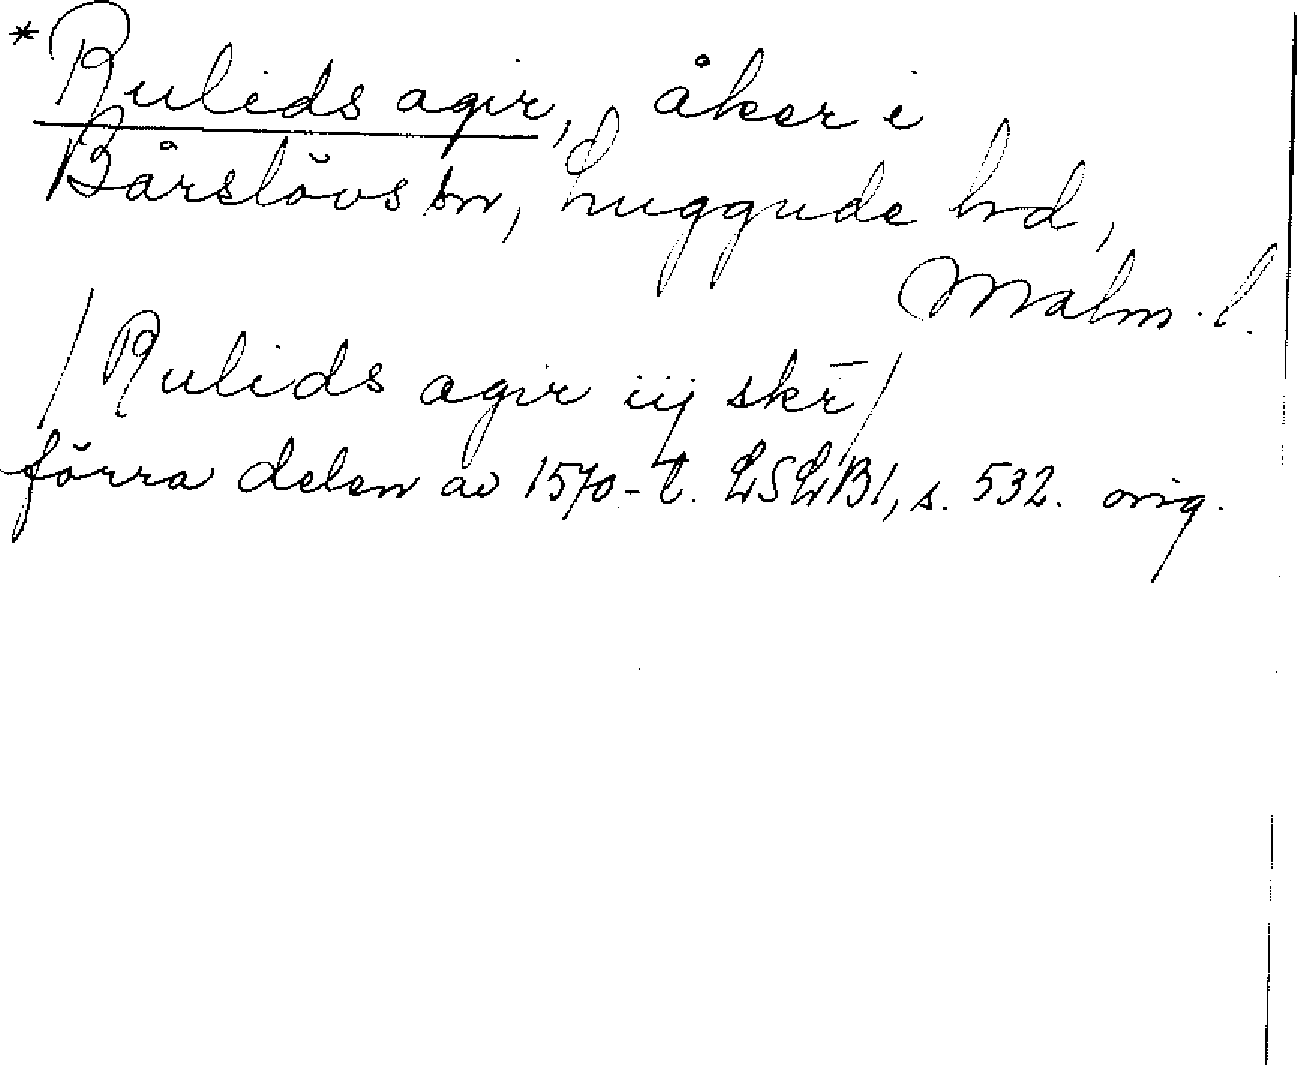 *Rulids agir, åker i
Bårslövs sn, Luggude hd,
Malm. l.
/Rulids agir iij skr̄/
förra delen av 1570-t. LSLB1, s. 532. orig.